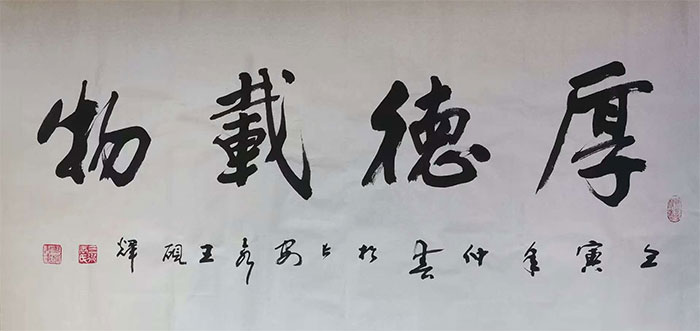 厚德載物
壬寅年仲於長安王硯輝